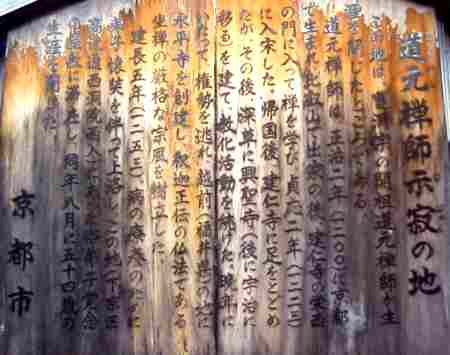 道元禅師示寂の地
この地は、曹洞宗の開祖道元禅師が生
涯を閉じたところである。
道元禅師は、正治二年（一二〇〇）京都
で生まれ、比叡山で出家の後、建仁寺の栄西
の門に入って禅を学び、貞応二年（一二二三）
に入宋した。帰国後、建仁寺に足をとどめ
たが、その後、深草に興聖寺（後に宇治に
移る）を建て、教化活動を続けた。晩年に
いたって、権勢を逃れ、越前（福井県）の地に
永平寺を創建し、釈迦正伝の仏法である
坐禅の厳格な宗風を樹立した。
建長五年（一二五三）、病の療養のために
弟子懐奘を伴って上洛し、この地（下京区
高辻通西洞院西入）にあった
生涯を閉じた。
京都市